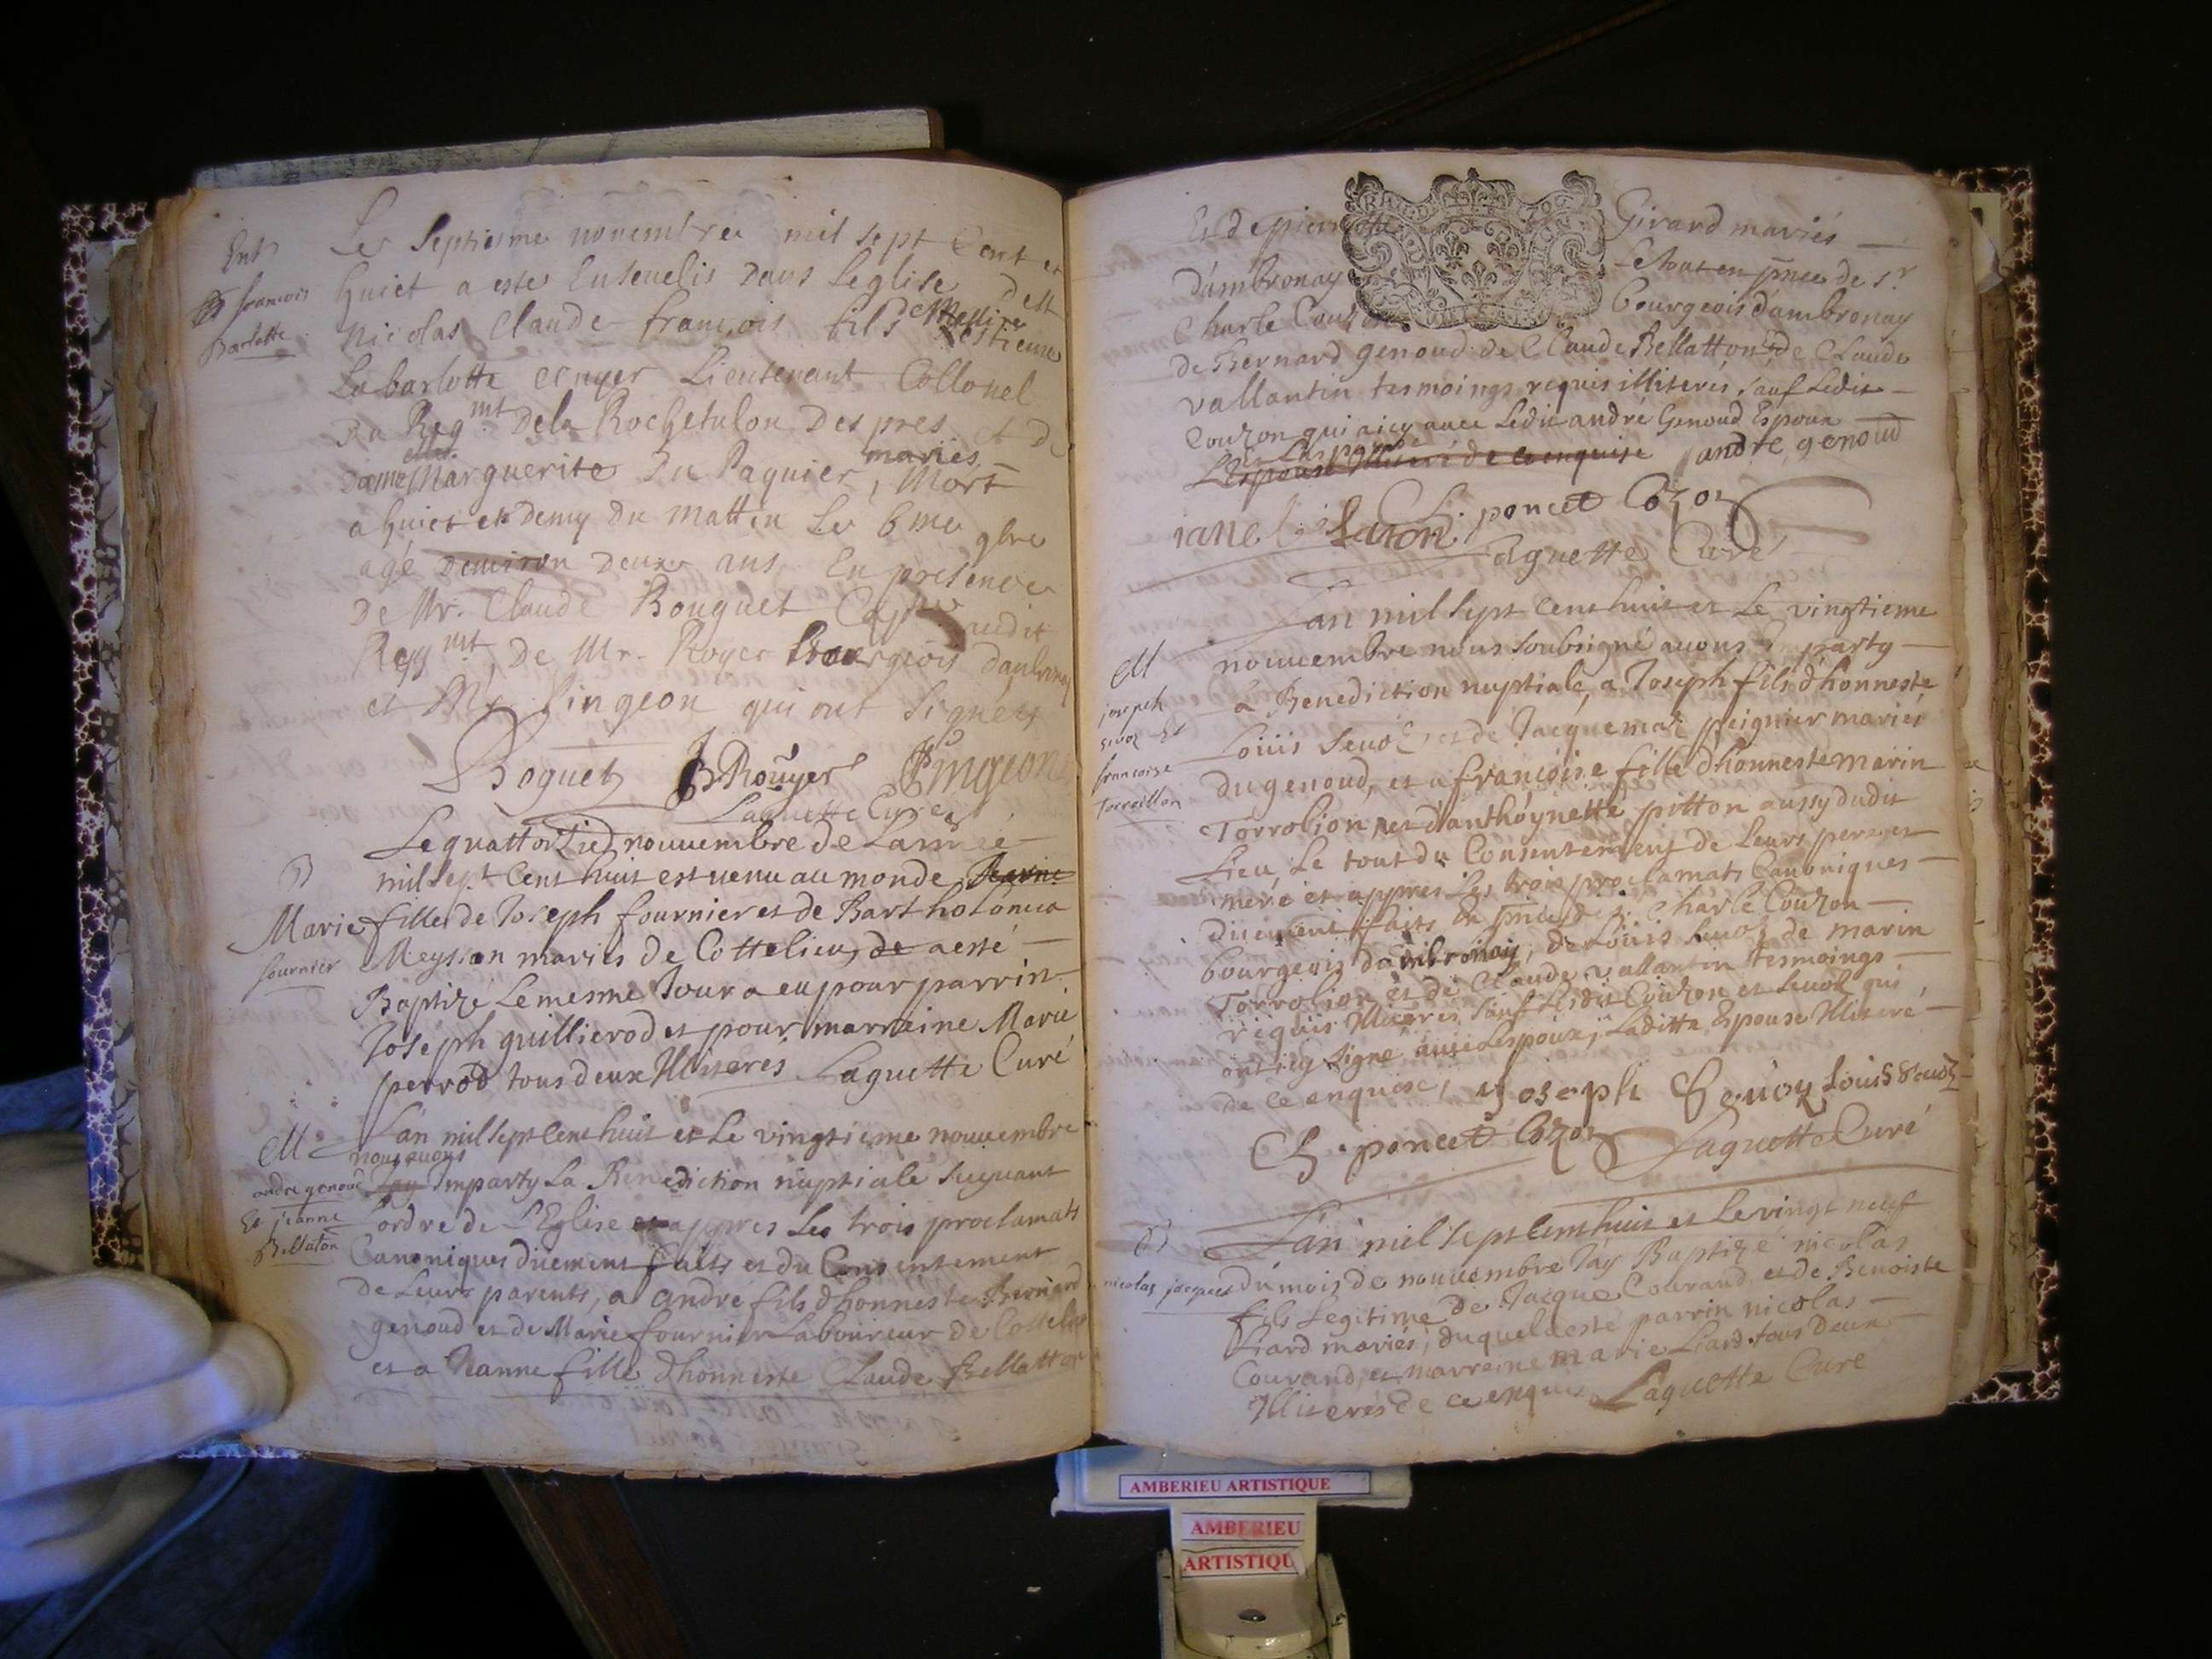 Ent
francois
Barlotte
Le Septiesme novembre mil sept Cent et
huict a este Ensevelis dans Leglise
Nicolas Claude francois fils de Messire Estienne
Labarlotte ecuyer Lieutenant Collonel
Du Regmt De la Rochetulon Des pres et de
dame Marguerite Du Paquier, mariés Mort
a huict et demy Du mattin Le 6me 9bre
agé Denviron Deux ans, En presence
De Mr. Claude Bouguet Cap dudit
Regmt, De Mr. Royer Bourgeois danbronay
et Mr Pingeon qui ont Signéz
Boguet BRouyer Pingeon
Laguette Curé
B
Marie
fournier
Le quattorzied nouuembre de Lannéé
mil sept Cent huit est uenu au monde
Marie fille de Joseph fournier et de Bartholomea
Meysson mariés de Cottelieu, de a esté
Baptizé Le mesme Jour a eu pour parrin
Joseph guillierod et pour marreine Marie
perrod tous deux Illiteres Laguette Curé
M
andre genoud
Et jeanne
Bellaton
Lan mil sept Cent huit et Le vingtieme nouuembre
nous auons
Jay Imparty La Benediction nuptiale suiuant
Lordre de LEglise et appres Les trois proclamats
Canoniques düement faits et du Consentement
de Leurs parents, a andré fils dhonneste Bernard
genoud et de Marie fournier Laboureur de Cottelieu
et a Jeanne fille dhonneste Claude Bellatton
Et de pierrette Girard mariés
Dambronay Le tout en pnce de sr
Charle Couzon Bourgeois dambronay
de Bernard genoud de Claude Bellatton et de Claude
vallantin tesmoings requis illiterés sauf Ledit
Couzon qui a icy auec Ledit andré Genoud Espoux
Lespouse Illiteré de ce enquise andre genoud
poncet Cozon
Laguette Curé
M
joseph
sevoz Et
francoise
Torrollion
Lan mil sept Cent huit et Le vingtieme
nouuembre nous soubsigné auons Imparty
La Benediction nuptiale, a Joseph fils dhonneste
Loüis Seuoz, et de Jacquemaz peignier mariés
du genoud, et a francoise fille dhonneste marin
Torrolion, et danthoynette pitton aussy dudit
Lieu, Le tout du Consentement de Leurs peres et
mere et appres Les trois proclamats Canoniques
düement faits En pnce de sr Charle Couzon
bourgeois dambronay, de Loüis Seuoz de marin
Torrolion et de Claude vallantin tesmoings
requis Illiterés, sauf Lesdit Couzon et Seuoz qui
ont icy signé auec Lespoux, Laditte Espouse Illiteré
de ce enquise, Joseph Sevoz Louis Seuoz
Ch. poncet Cozon Laguette Curé
B
nicolas jacques
Lan mil sept Cent huit et Le vingt neuf
du mois de nouuembre Jay Baptizé nicolas
fils Legitime de Jacque Courand, et de Benoiste
Liard mariés, duquel a esté parrin nicolas
Courand, et marreine marie Liard tous Deux
Illiterés de ce enquis Laguette Curé
AMBERIEU ARTISTIQUE
AMBERIEU
ARTISTIQU